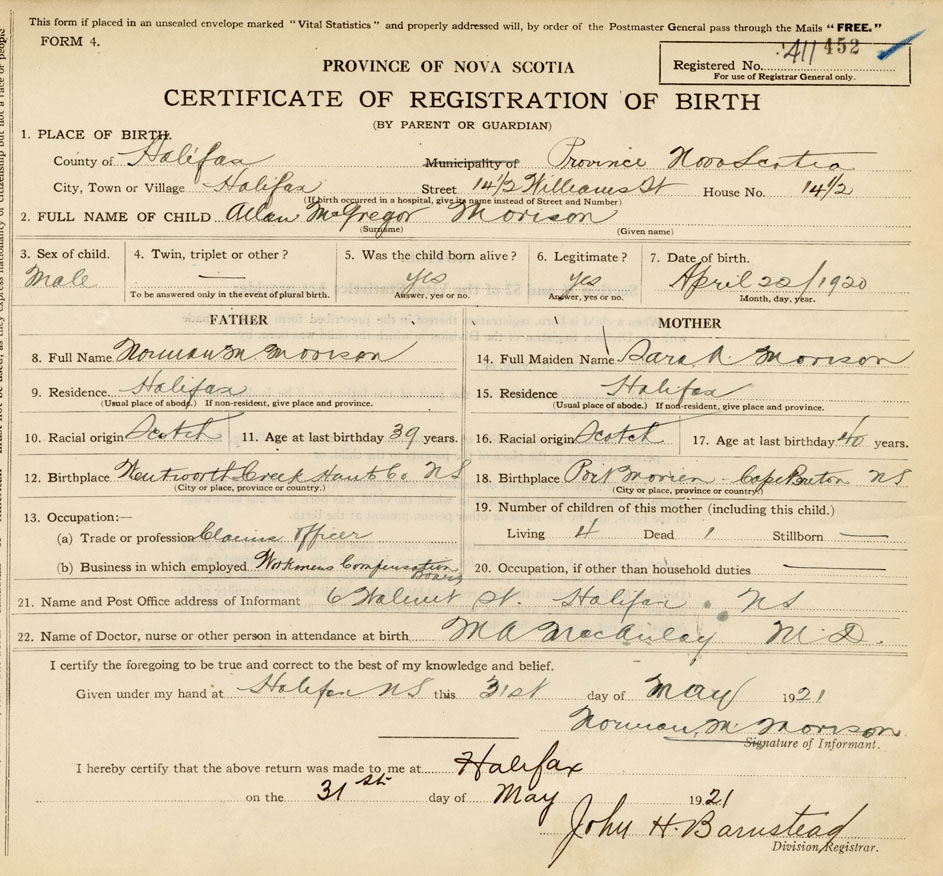 This form if placed in an unsealed envelope marked "Vital Statistics" and properly addressed will, by order of the Postmaster General pass through the Mails "FREE."
FORM 4.
Registered No. 411 452
For use of Registrar General only.
PROVINCE OF NOVA SCOTIA
CERTIFICATE OF REGISTRATION OF BIRTH
(BY PARENT OR GUARDIAN)
1. PLACE OF BIRTH.
County of Halifax Municipality of Province Nova Scotia
City, Town or Village Halifax Street 14½ Williams St House No. 14½
(If birth occurred in a hospital, give its name instead of Street and Number)
2. FULL NAME OF CHILD Allan McGregor Morison
(Surname) (Given name)
3. Sex of child. 4. Twin, triplet or other? 5. Was the child born alive? 6. Legitimate? 7. Date of birth.
Male — yes yes April 22/1920
To be answered only in the event of plural birth. Answer, yes or no. Answer, yes or no. Month, day, year.
FATHER MOTHER
8. Full Name Norman M Morison 14. Full Maiden Name Sara A. Morison
9. Residence Halifax 15. Residence Halifax
(Usual place of abode.) If non-resident, give place and province. (Usual place of abode.) If non-resident, give place and province.
10. Racial origin Scotch 11. Age at last birthday 39 years. 16. Racial origin Scotch 17. Age at last birthday 40 years.
12. Birthplace Wentworth Creek Hants Co NS 18. Birthplace Port Morien - Cape Breton NS
(City or place, province or country.) (City or place, province or country)
13. Occupation:— 19. Number of children of this mother (including this child.)
(a) Trade or profession Claims Officer Living 4 Dead 1 Stillborn —
(b) Business in which employed Workmens Compensation Board 20. Occupation, if other than household duties —
21. Name and Post Office address of Informant 6 Walnut St. Halifax. NS
22. Name of Doctor, nurse or other person in attendance at birth M A MacAulay M.D.
I certify the foregoing to be true and correct to the best of my knowledge and belief.
Given under my hand at Halifax NS this 31st day of May 1921
Norman M. Morison
Signature of Informant.
I hereby certify that the above return was made to me at Halifax
on the 31st day of May 1921
John H. Barnstead
Division Registrar.